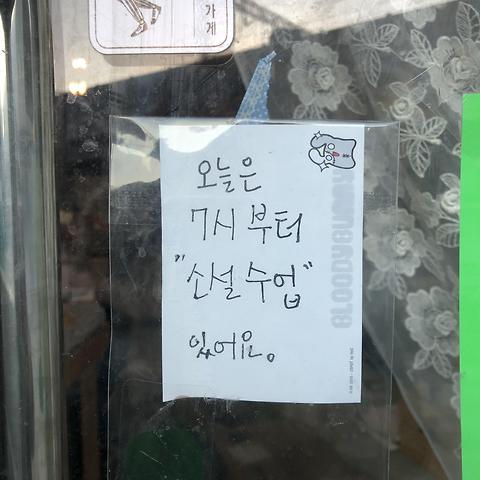 가게
오늘은
7시 부터
"신설 수업"
있어요.